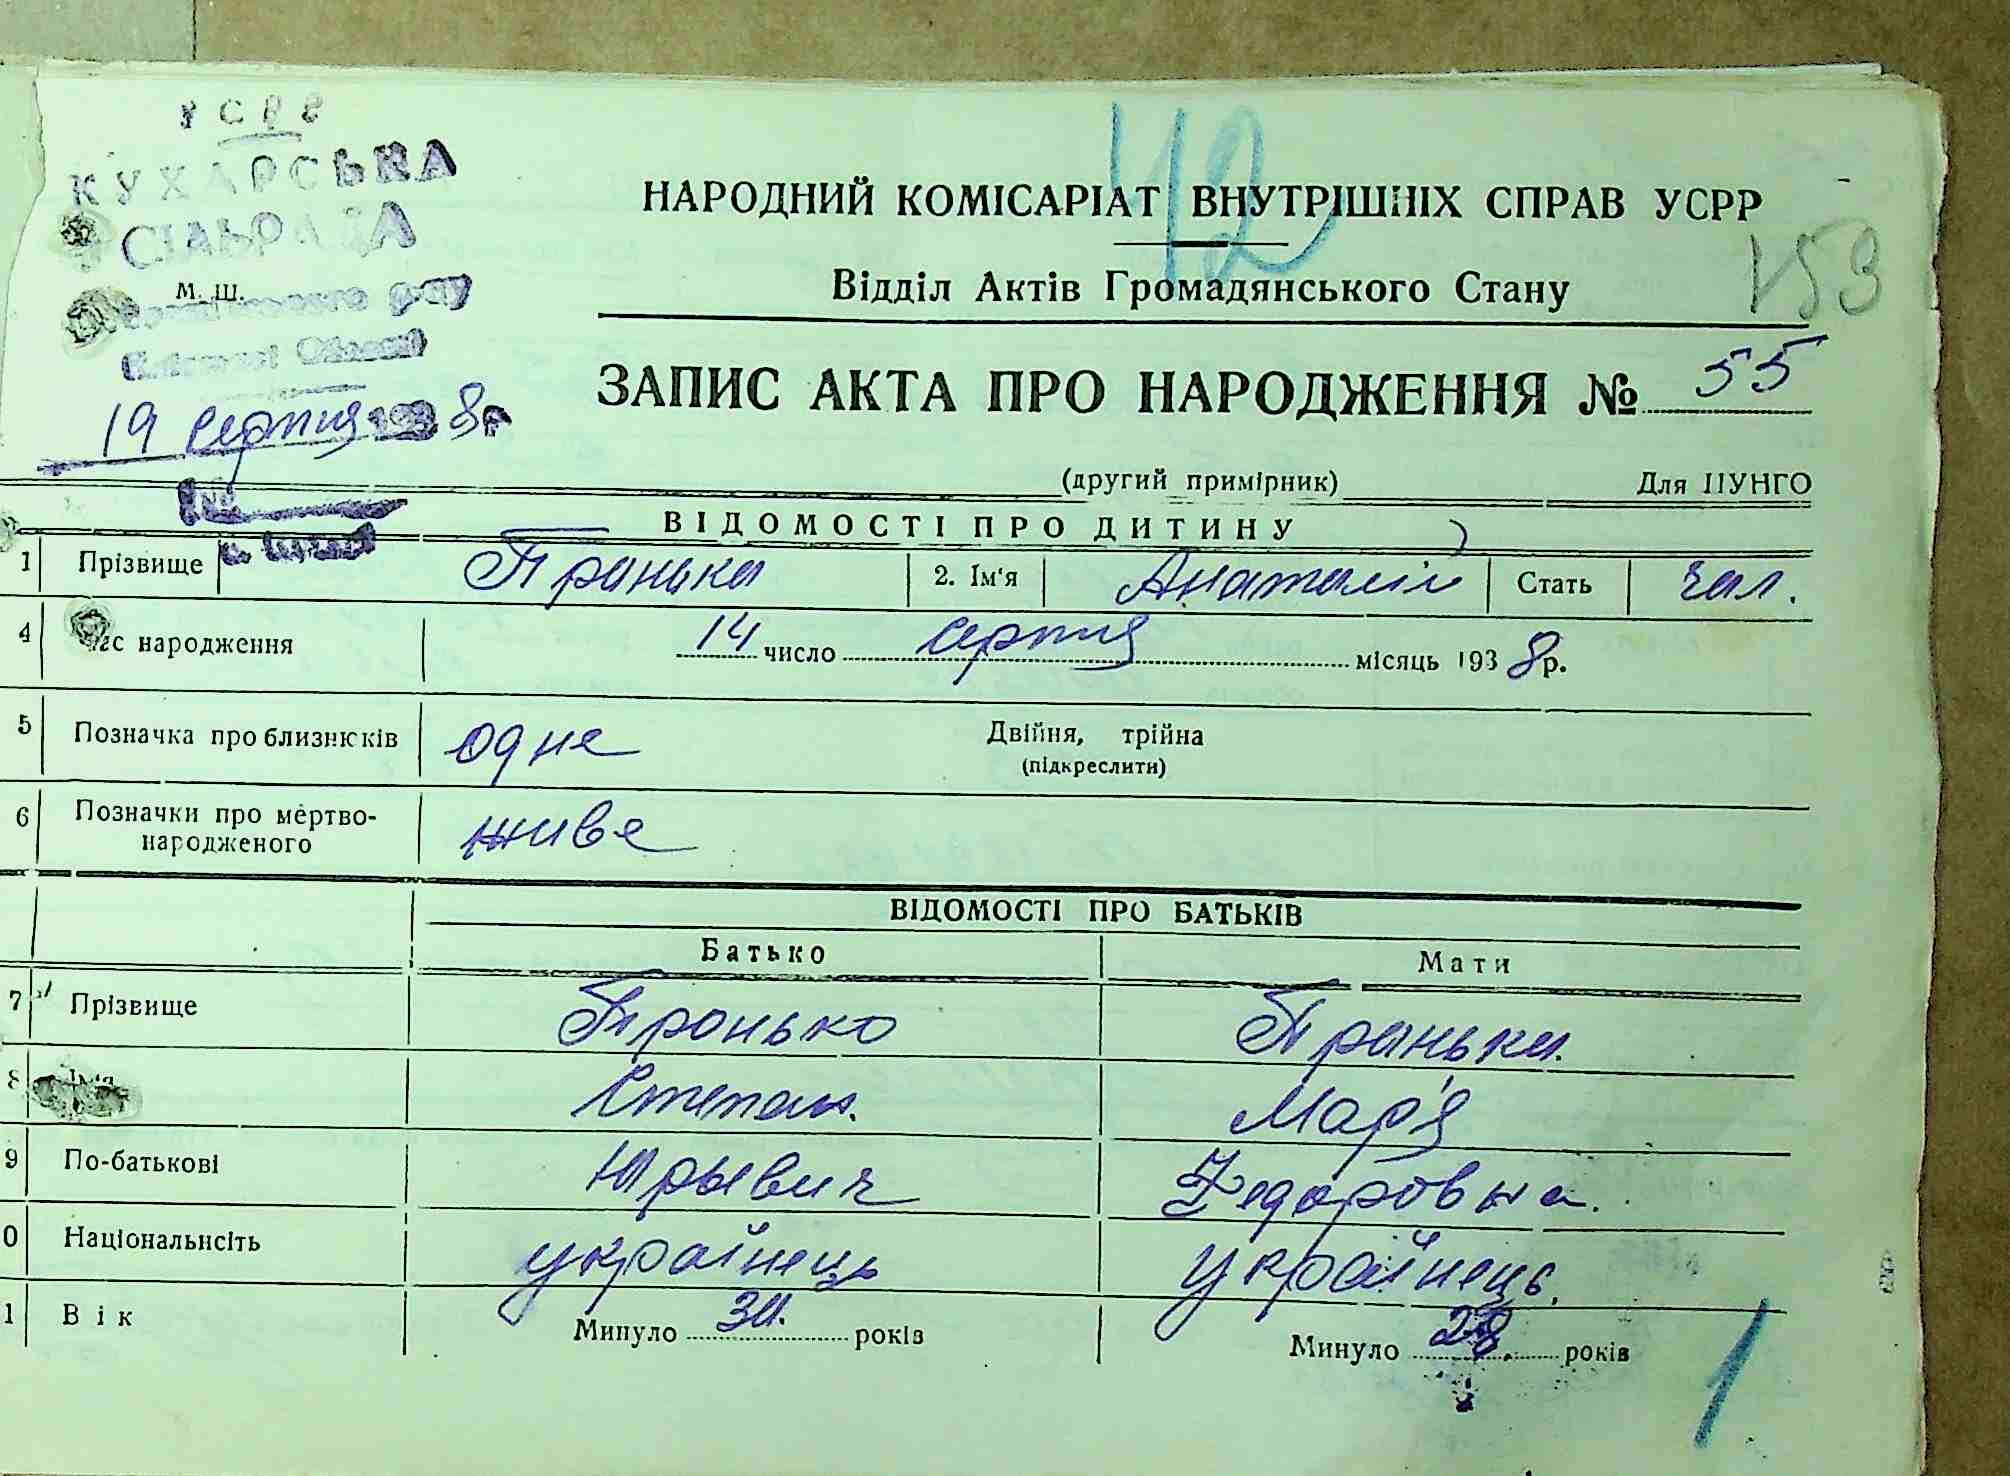 УСРР
КУХАРСЬКА
СІЛЬРАДА
М. Ш.
р-ну
Київської Області
19 серпня 1938р
42
153
НАРОДНИЙ КОМІСАРІАТ ВНУТРІШНІХ СПРАВ УСРР
Відділ Актів Громадянського Стану
ЗАПИС АКТА ПРО НАРОДЖЕННЯ № 55
(другий примірник) Для ЦУНГО
ВІДОМОСТІ ПРО ДИТИНУ
1 Прізвище Пронько 2. Ім'я Анатолій Стать чол.
4 Час народження 14 число серпня місяць 1938р.
5 Позначка про близнюків одне Двійня, трійна
(підкреслити)
6 Позначки про мертво-
народженого живе
ВІДОМОСТІ ПРО БАТЬКІВ
Батько Мати
7 Прізвище Пронько Пронько.
8 Ім'я Степан. Мар'я
9 По-батькові Юрьевич Федоровна.
0 Національність українець українець.
1 Вік Минуло років Минуло 28. років
1